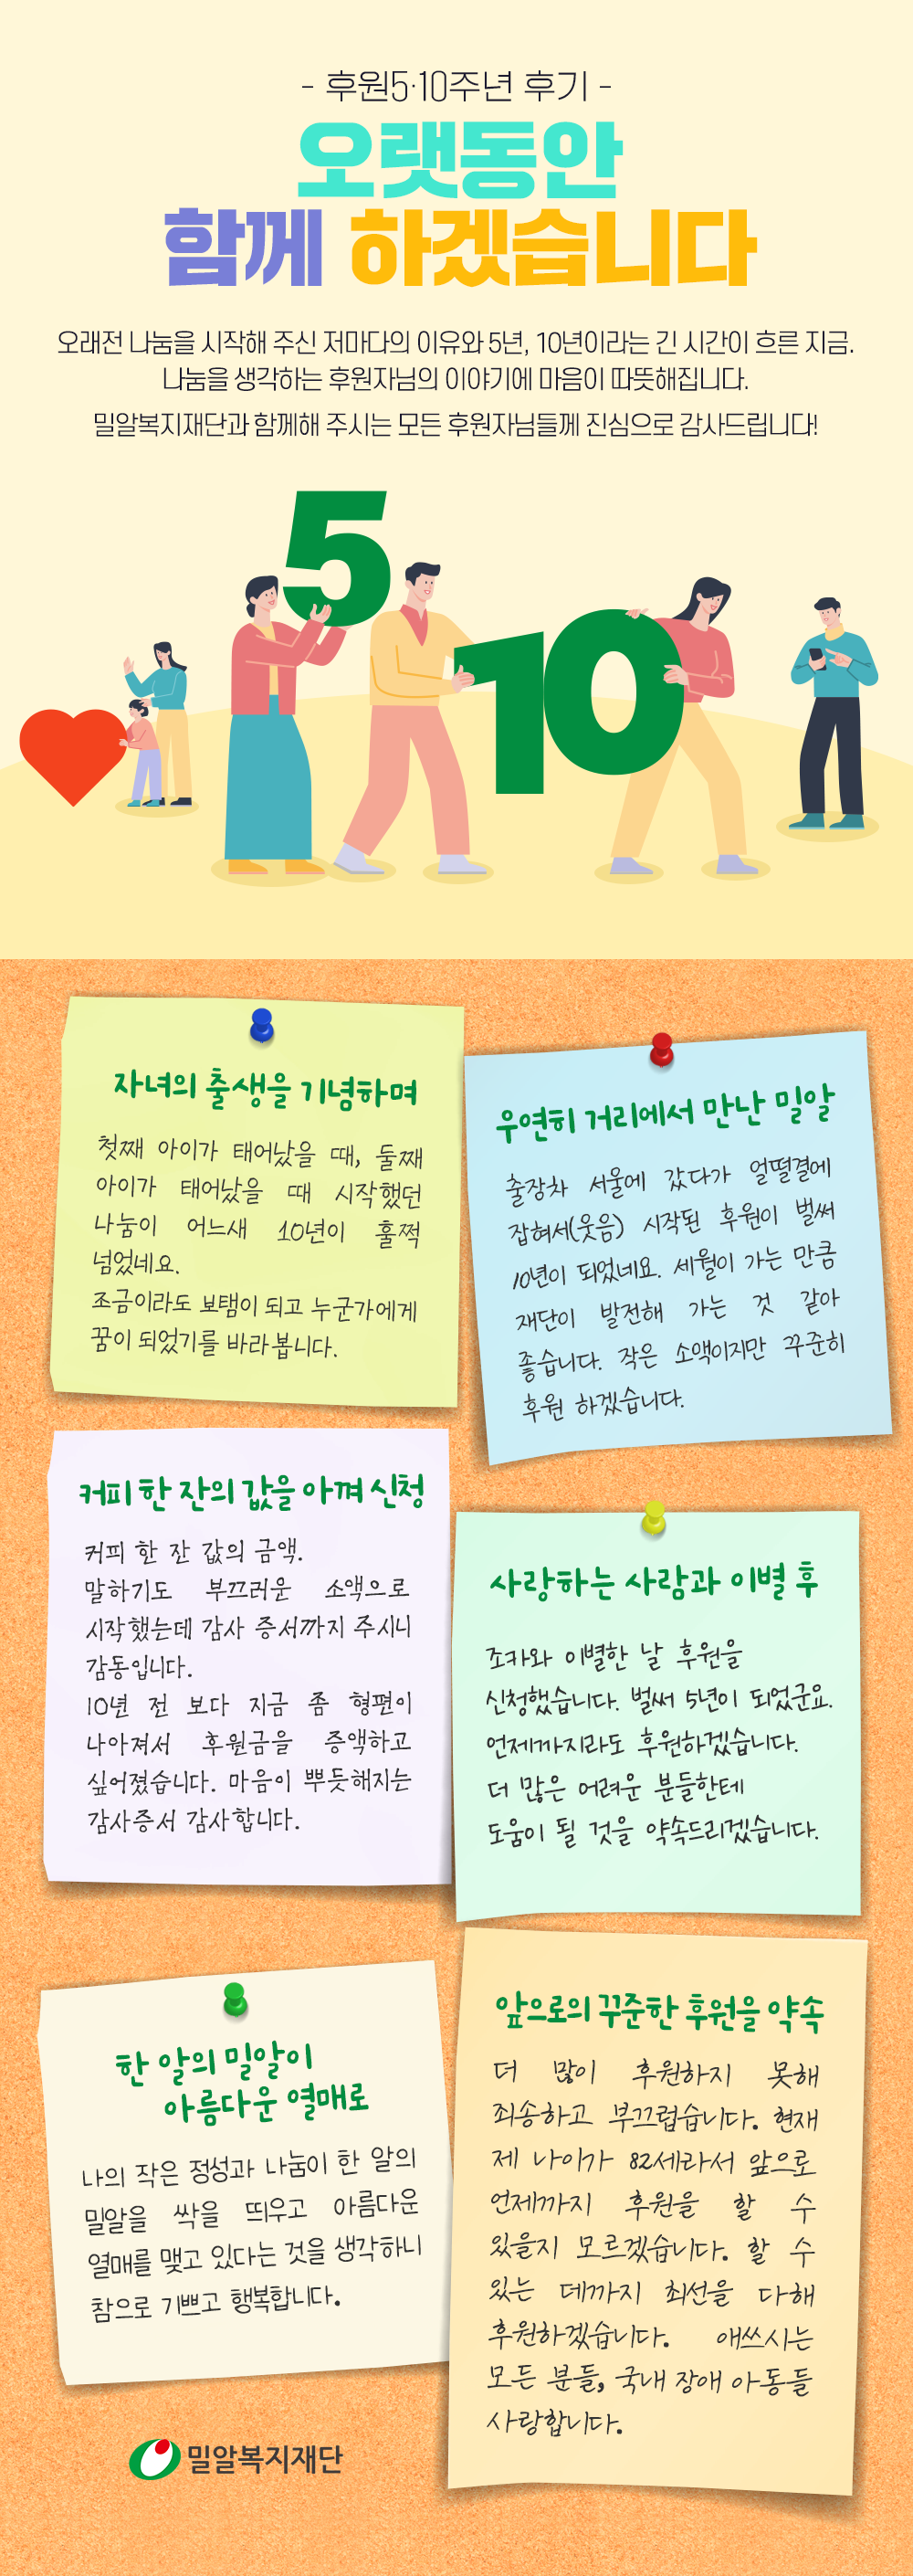 - 후원5·10주년 후기 -
오랫동안
함께 하겠습니다
오래전 나눔을 시작해 주신 저마다의 이유와 5년, 10년이라는 긴 시간이 흐른 지금.
나눔을 생각하는 후원자님의 이야기에 마음이 따뜻해집니다.
밀알복지재단과 함께해 주시는 모든 후원자님들께 진심으로 감사드립니다!
5
10
자녀의 출생을 기념하며
첫째 아이가 태어났을 때, 둘째
아이가 태어났을 때 시작했던
나눔이 어느새 10년이 훌쩍
넘었네요.
조금이라도 보탬이 되고 누군가에게
꿈이 되었기를 바라봅니다.
우연히 거리에서 만난 밀알
출장차 서울에 갔다가 얼떨결에
잡혀서(웃음) 시작된 후원이 벌써
10년이 되었네요. 세월이 가는 만큼
재단이 발전해 가는 것 같아
좋습니다. 작은 소액이지만 꾸준히
후원 하겠습니다.
커피 한 잔의 값을 아껴 신청
커피 한 잔 값의 금액.
말하기도 부끄러운 소액으로
시작했는데 감사 증서까지 주시니
감동입니다.
10년 전 보다 지금 좀 형편이
나아져서 후원금을 증액하고
싶어졌습니다. 마음이 뿌듯해지는
감사증서 감사합니다.
사랑하는 사람과 이별 후
조카와 이별한 날 후원을
신청했습니다. 벌써 5년이 되었군요.
언제까지라도 후원하겠습니다.
더 많은 어려운 분들한테
도움이 될 것을 약속드리겠습니다.
한 알의 밀알이
아름다운 열매로
나의 작은 정성과 나눔이 한 알의
밀알을 싹을 띄우고 아름다운
열매를 맺고 있다는 것을 생각하니
참으로 기쁘고 행복합니다.
앞으로의 꾸준한 후원을 약속
더 많이 후원하지 못해
죄송하고 부끄럽습니다. 현재
제 나이가 82세라서 앞으로
언제까지 후원을 할 수
있을지 모르겠습니다. 할 수
있는 데까지 최선을 다해
후원하겠습니다. 애쓰시는
모든 분들, 국내 장애 아동들
사랑합니다.
밀알복지재단